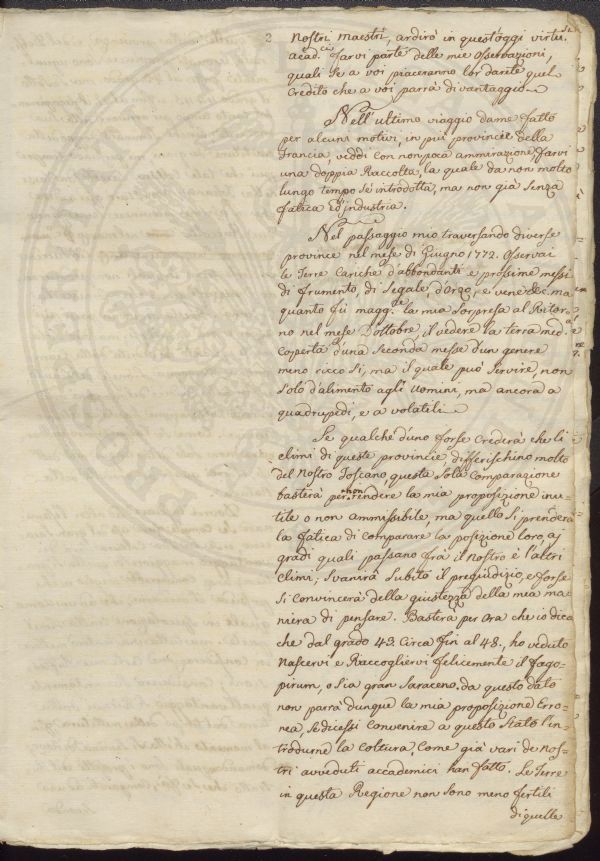 2
nostri maestri, ardirò in quest'oggi virtu.si
acad.ci farvi parte delle mie osservazioni,
quali se a voi piaceranno lor darete quel
credito che a voi parrà di vantaggio.
Nell'ultimo viaggio da me fatto
per alcuni motivi, in più provincie della
Francia, viddi con non poca ammirazione, farvi
una doppia Raccolta, la quale da non molto
lungo tempo s'è introdotta, ma non già senza
fatica ed industria.
Nel passaggio mio traversando diverse
province nel mese di Giugno 1772. Osservai
le Terre cariche d'abbondanti e prossime messi
di frumento, di segale, d'orzo, e vene &c. ma
quanto fu magg.re la mia sorpresa al Ritor-
no nel mese d'ottobre, il vedere la terra med.a
coperta d'una seconda messe d'un genere
meno ricco si, ma il quale può servire, non
solo d'alimento agli uomini, ma ancora a
quadrupedi, e a volatili.
Se qualche d'uno forse crederà che li
climi di queste provincie, differischino molto
del nostro Toscano questa sola comparazione
basterà per non rendere la mia proposizione inu-
tile o non ammissibile, ma quello si prenderà
la fatica di comparare la posizione loro, a i
gradi quali passano frà il nostro e l'altri
climi; svanirà subito il pregiudizio, e forse
si convincerà della giustezza della mea ma-
niera di pensare. Basterà per ora che io dica
che dal grado 43. circa fin al 48., ho veduto
nascervi e Raccogliervi felicemente il fago-
pirum, o sia gran saraceno. da questo dato
non parrà dunque la mia proposizione erro-
nea, se dicessi convenire a questo stato l'in-
trodurne la coltura, come già vari de nos-
tri avveduti accademici han fatto. Le Terre
in questa Regione non sono meno fertili
di quelle